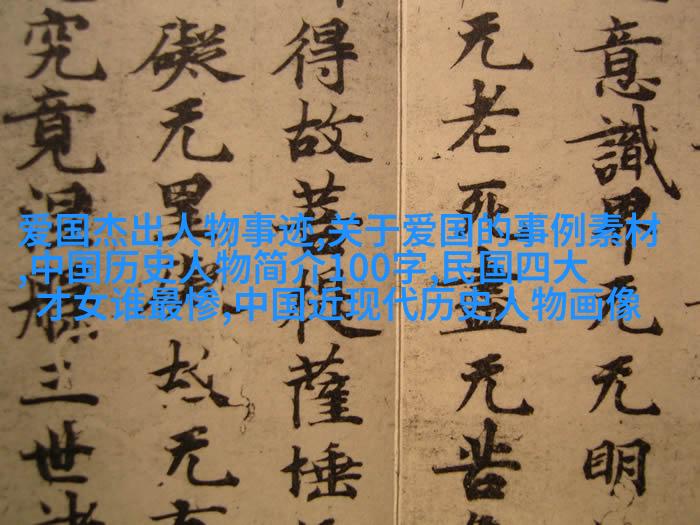 意識界无无明
无老死盡无苦
得故菩提薩埵
礙无罣礙故无有
究竟涅槃三世諸
爱国杰出人物事迹,关于爱国的事例素材
,中国历史人物简介100字,民国四大
才女谁最惨,中国近现代历史人物画像